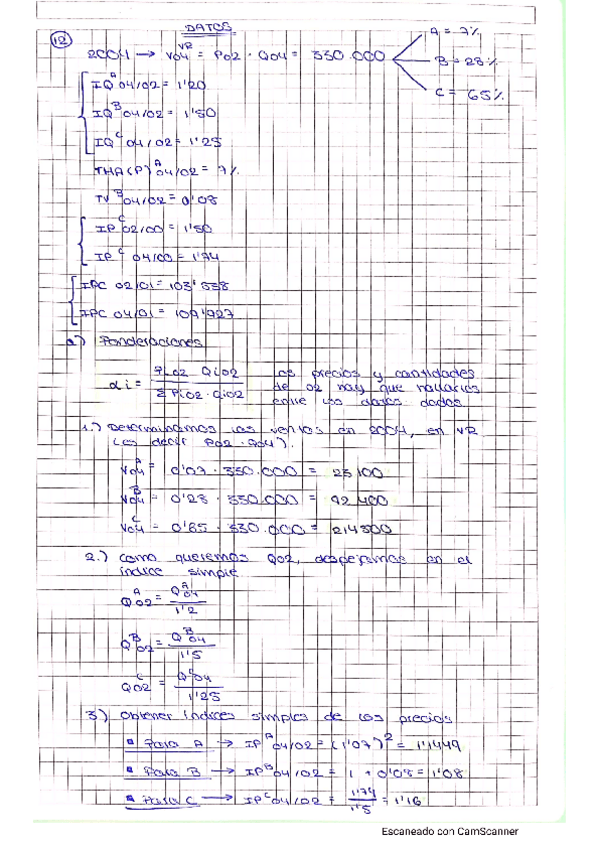 DATOS
12
2004 → V04^VR = P02 · Q04 = 330.000
A = 7%
B = 28%
C = 65%
IQ^A 04/02 = 1'20
IQ^B 04/02 = 1'50
IQ^C 04/02 = 1'25
THA(P)^A 04/02 = 7%
TV^B 04/02 = 0'08
IP^C 02/00 = 1'50
IP^C 04/00 = 1'74
IPC 02/01 = 103'538
IPC 04/01 = 109'927
a) Ponderaciones
αi = Pi02 · Qi02 / Σ Pi02 · Qi02
Los precios y cantidades
de 02 hay que hallarlos
entre los datos dados
1.) Determinamos las ventas en 2004, en VR
(es decir P02 · Q04).
V04^A = 0'07 · 330.000 = 23.100
V04^B = 0'28 · 330.000 = 92.400
V04^C = 0'65 · 330.000 = 214500
2.) Como queremos Q02, despejamos en el
índice simple
Q^A 02 = Q^A 04 / 1'2
Q^B 02 = Q^B 04 / 1'5
Q^C 02 = Q^C 04 / 1'25
3) Obtener índices simples de los precios
▪ Para A → IP^A 04/02 = (1'07)² = 1'1449
▪ Para B → IP^B 04/02 = 1 + 0'08 = 1'08
▪ Para C → IP^C 04/02 = 1'74 / 1'5 = 1'16
Escaneado con CamScanner